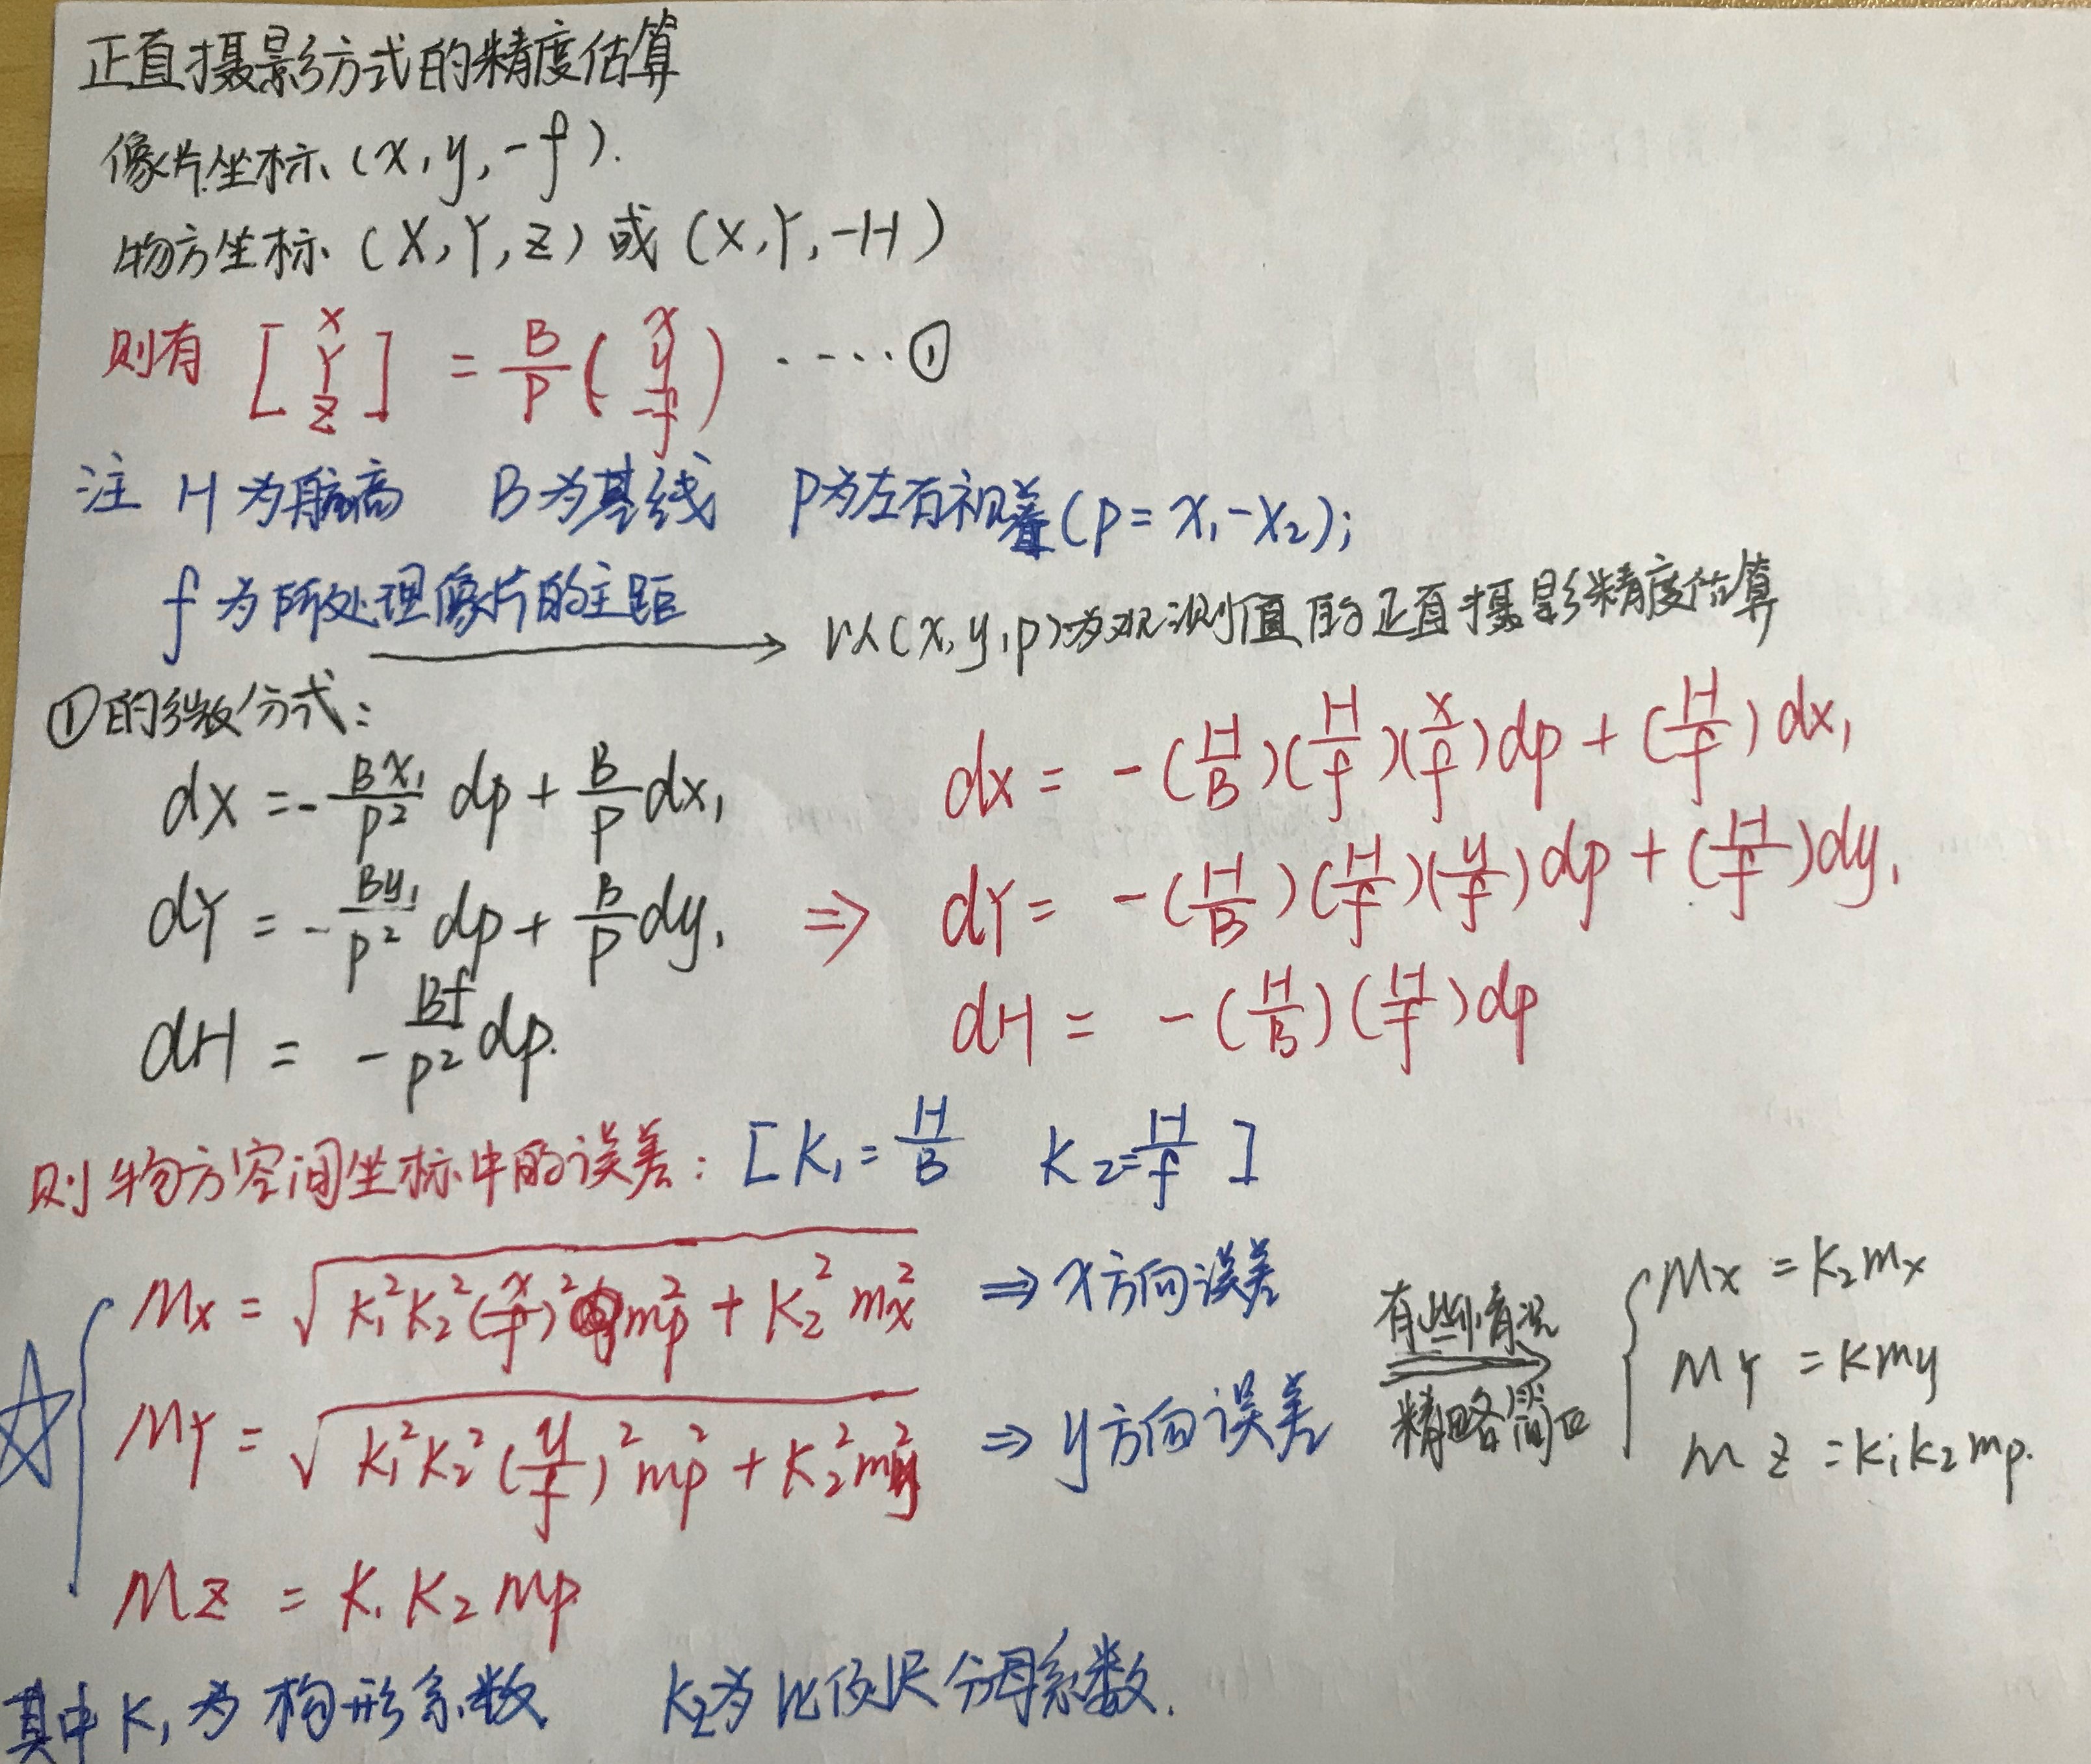 正直摄影方式的精度估算
像片坐标 (x, y, -f).
物方坐标 (X, Y, Z) 或 (X, Y, -H)
则有 [X Y Z] = B/P (x y -f) ····· ①
注 H为航高 B为基线 P为左右视差 (P = x₁-x₂);
f为所处理像片的主距
以(x, y, p)为观测值的正直摄影精度估算
①的微分式:
dX = - Bx₁/P² dp + B/P dx₁
dY = - By₁/P² dp + B/P dy₁
dH = - Bf/P² dp.
⇒
dx = -(H/B)(H/f)(x/f)dp + (H/f)dx₁
dY = -(H/B)(H/f)(y/f)dp + (H/f)dy₁
dH = -(H/B)(H/f)dp
则物方空间坐标中的误差: [K₁ = H/B K₂ = H/f]
Mx = √(K₁²K₂²(x/f)²mp² + K₂²mx²) ⇒ x方向误差
MY = √(K₁²K₂²(y/f)²mp² + K₂²my²) ⇒ y方向误差
MZ = K₁K₂mp
有些情况
Mx = K₂mx
MY = Kmy
mZ = K₁K₂mp.
其中K₁为构形系数 K₂为比例尺分母系数.